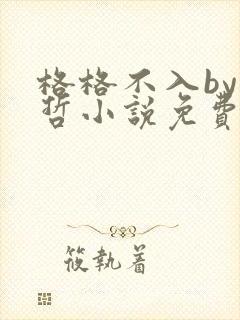 格格不入by
哲小說免費
筱執着